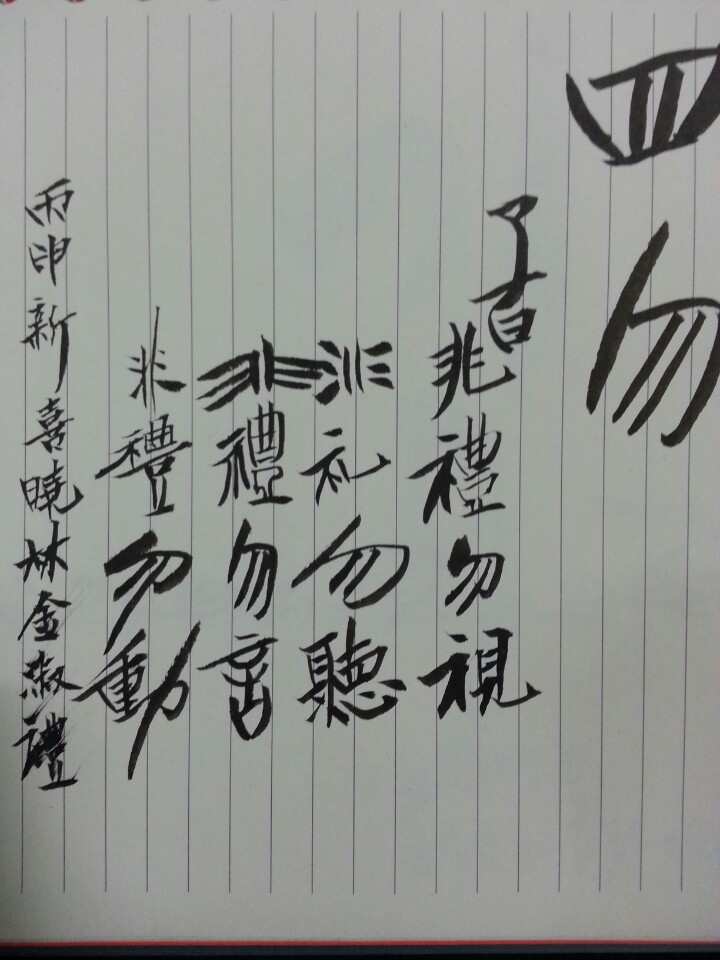 四勿
子曰
非禮勿視
非礼勿聽
非禮勿言
非禮勿動
丙申新喜曉林金淑禮